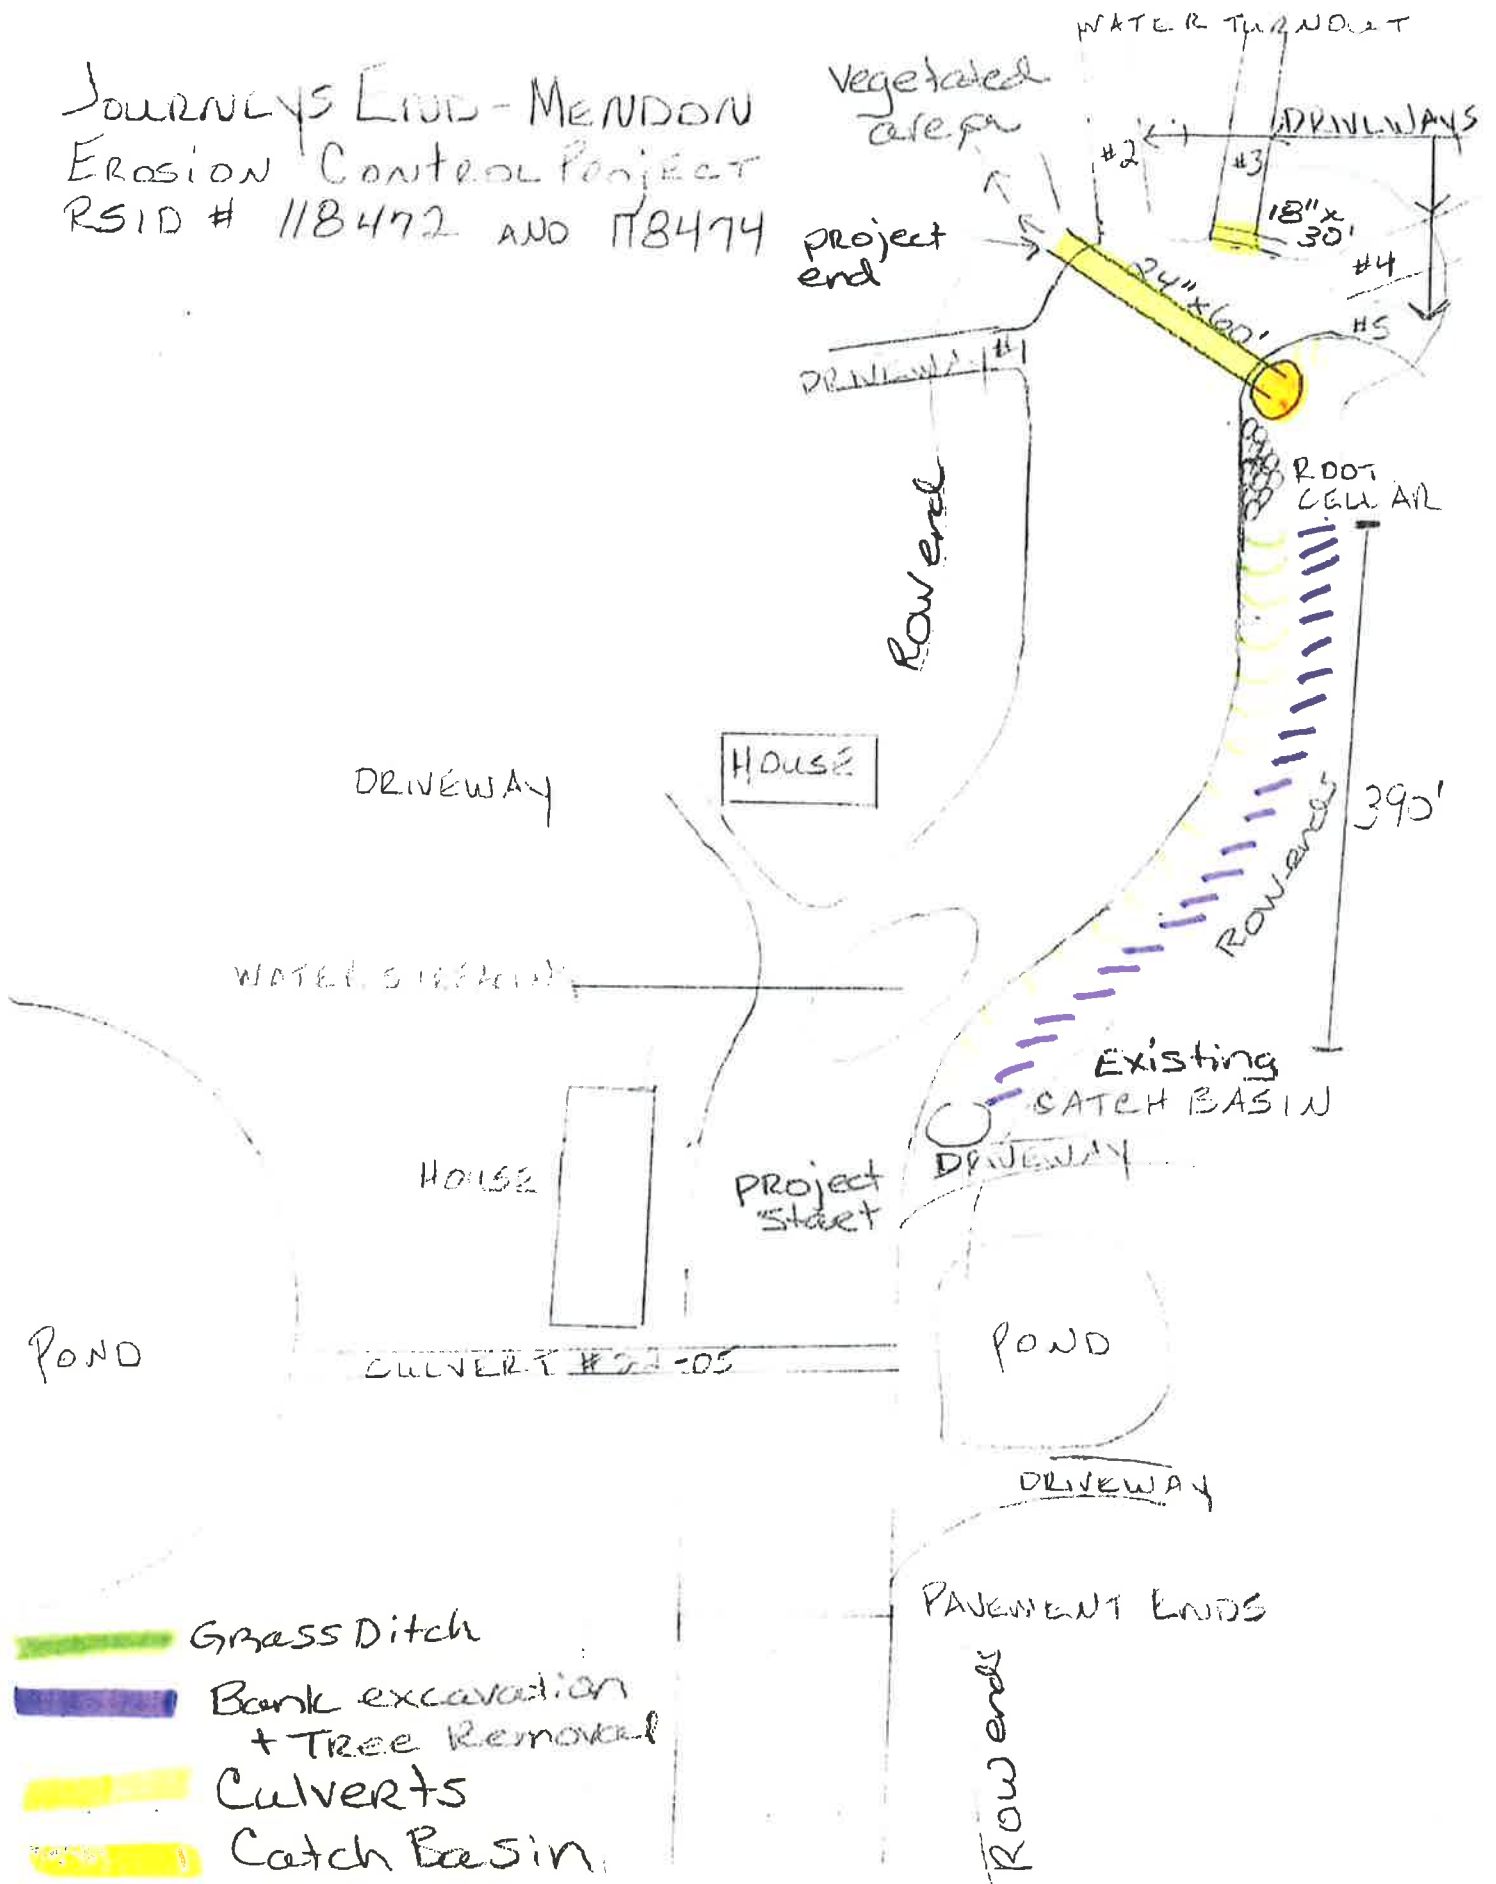 JOURNEYS END - MENDON
EROSION CONTROL PROJECT
RSID # 118472 AND 118474
WATER TURNOUT
Vegetated
area
DRIVEWAYS
#2
#3
18" x
30'
project
end
24" x 60'
#4
#5
DRIVEWAY #1
ROOT
CELLAR
Row end
HOUSE
DRIVEWAY
390'
Row ends
WATER
Existing
CATCH BASIN
DRIVEWAY
HOUSE
PROject
start
POND
POND
CULVERT # -05
DRIVEWAY
PAVEMENT ENDS
Row ends
GRass Ditch
Bank excavation
+ TRee Removal
CulveRts
Catch Basin